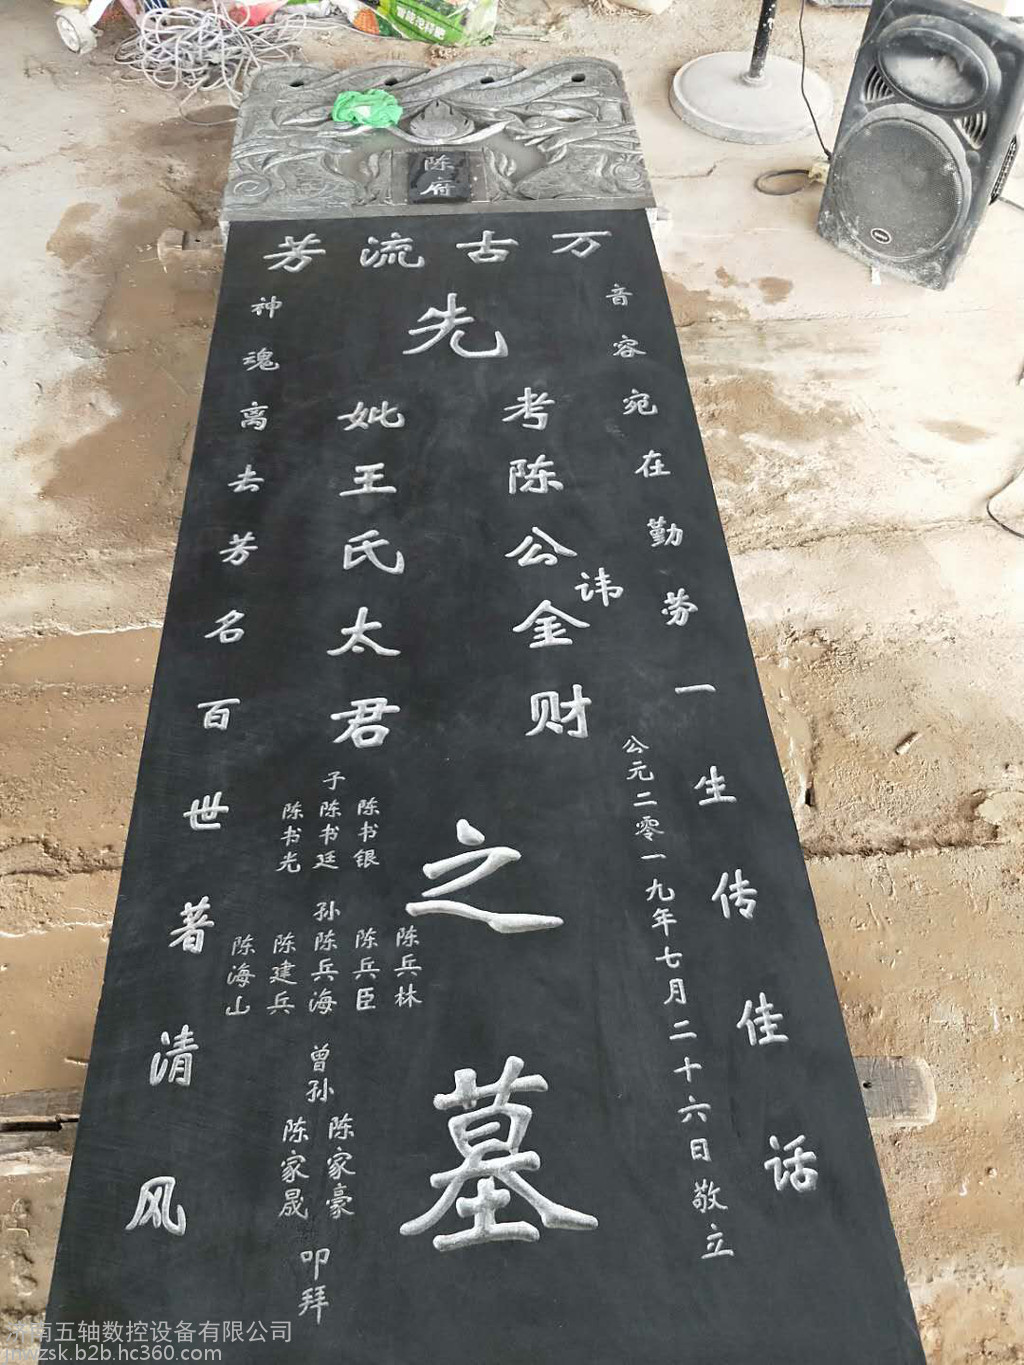 陈府
万古流芳
音容宛在勤劳一生传佳话
公元二零一九年七月二十六日敬立
先
考陈公讳金财
妣王氏太君
之墓
子
陈书银
陈书廷
陈书光
孙
陈兵林
陈兵臣
陈兵海
陈建兵
陈海山
曾孙
陈家豪
陈家晟
叩拜
神魂离去芳名百世著清风
南五轴数控设备有限公司
mwzsk.b2b.hc360.com